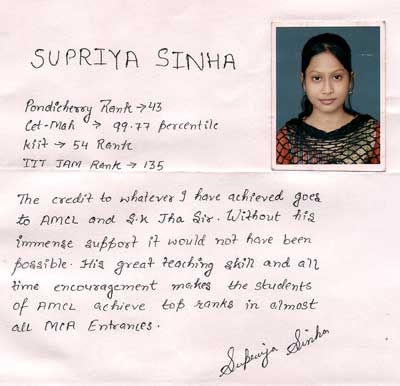 SUPRIYA SINHA
Pondicherry Rank → 43
Cet-Mah → 99.77 percentile
Kiit → 54 Rank
IIT JAM Rank → 135
The credit to whatever I have achieved goes
to AMCL and S.K Jha Sir. Without his
immense support it would not have been
possible. His great teaching skill and all
time encouragement makes the students
of AMCL achieve top ranks in almost
all MCA Entrances.
Supriya Sinha